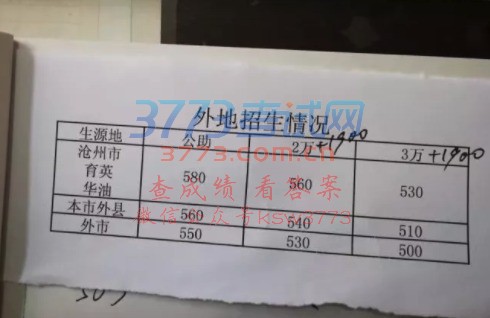 外地招生情况
生源地 公助 2万+1900 3万+1900
沧州市
育英 580 560 530
华油
本市外县 560 540 510
外市 550 530 500
3773考试网
3773.com.cn
查成绩 看答案
微信公众号KSW3773